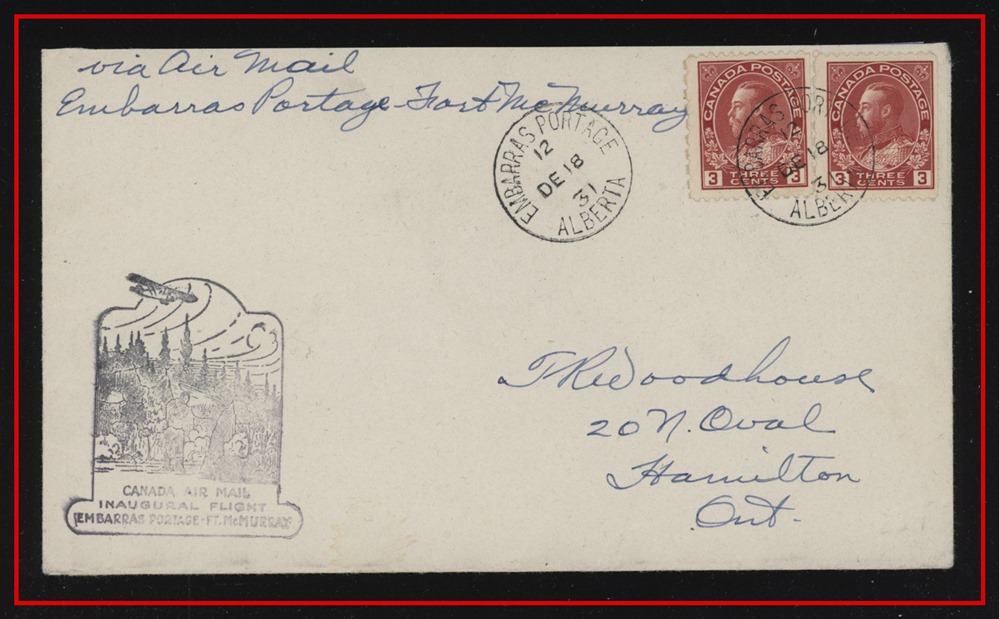 via Air Mail
Embarras Portage - Fort McMurray
CANADA POSTAGE
3 THREE CENTS 3
CANADA POSTAGE
3 THREE CENTS 3
EMBARRAS PORTAGE
12
DE 18
31
ALBERTA
EMBARRAS POR
12
DE 18
3
ALBER
T R Woodhouse
20 N. Oval
Hamilton
Ont.
CANADA AIR MAIL
INAUGURAL FLIGHT
EMBARRAS PORTAGE-FT. McMURRAY